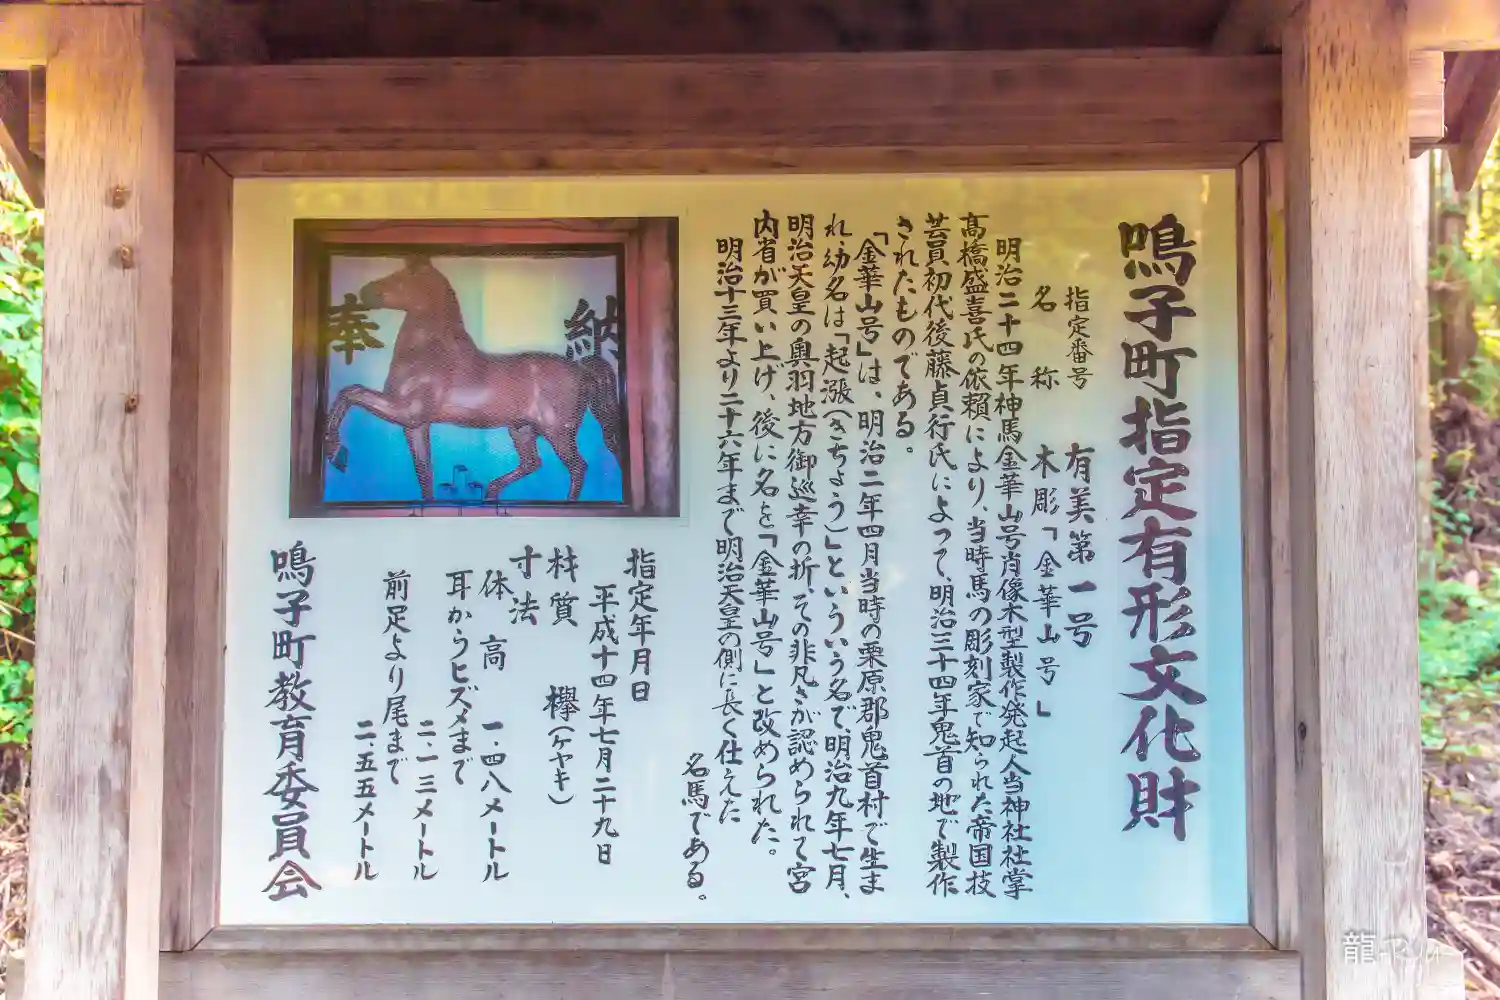 鳴子町指定有形文化財
指定番号　有美第一号
名称　木彫「金華山号」
明治二十四年神馬金華山号肖像木型製作発起人当神社社掌
髙橋盛喜氏の依頼により、当時馬の彫刻家で知られた帝国技
芸員初代後藤貞行氏によって、明治三十四年鬼首の地で製作
されたものである。
「金華山号」は、明治二年四月当時の栗原郡鬼首村で生ま
れ幼名は「起漲(きちょう)」といういう名で、明治九年七月、
明治天皇の奥羽地方御巡幸の折、その非凡さが認められて宮
内省が買い上げ、後に名を「金華山号」と改められた。
明治十三年より二十六年まで明治天皇の側に長く仕えた
名馬である。
奉納
指定年月日
平成十四年七月二十九日
材質　欅(ケヤキ)
寸法
体高　一.四八メートル
耳からヒズメまで
二.一三メートル
前足より尾まで
二.五五メートル
鳴子町教育委員会
龍-Ryu-